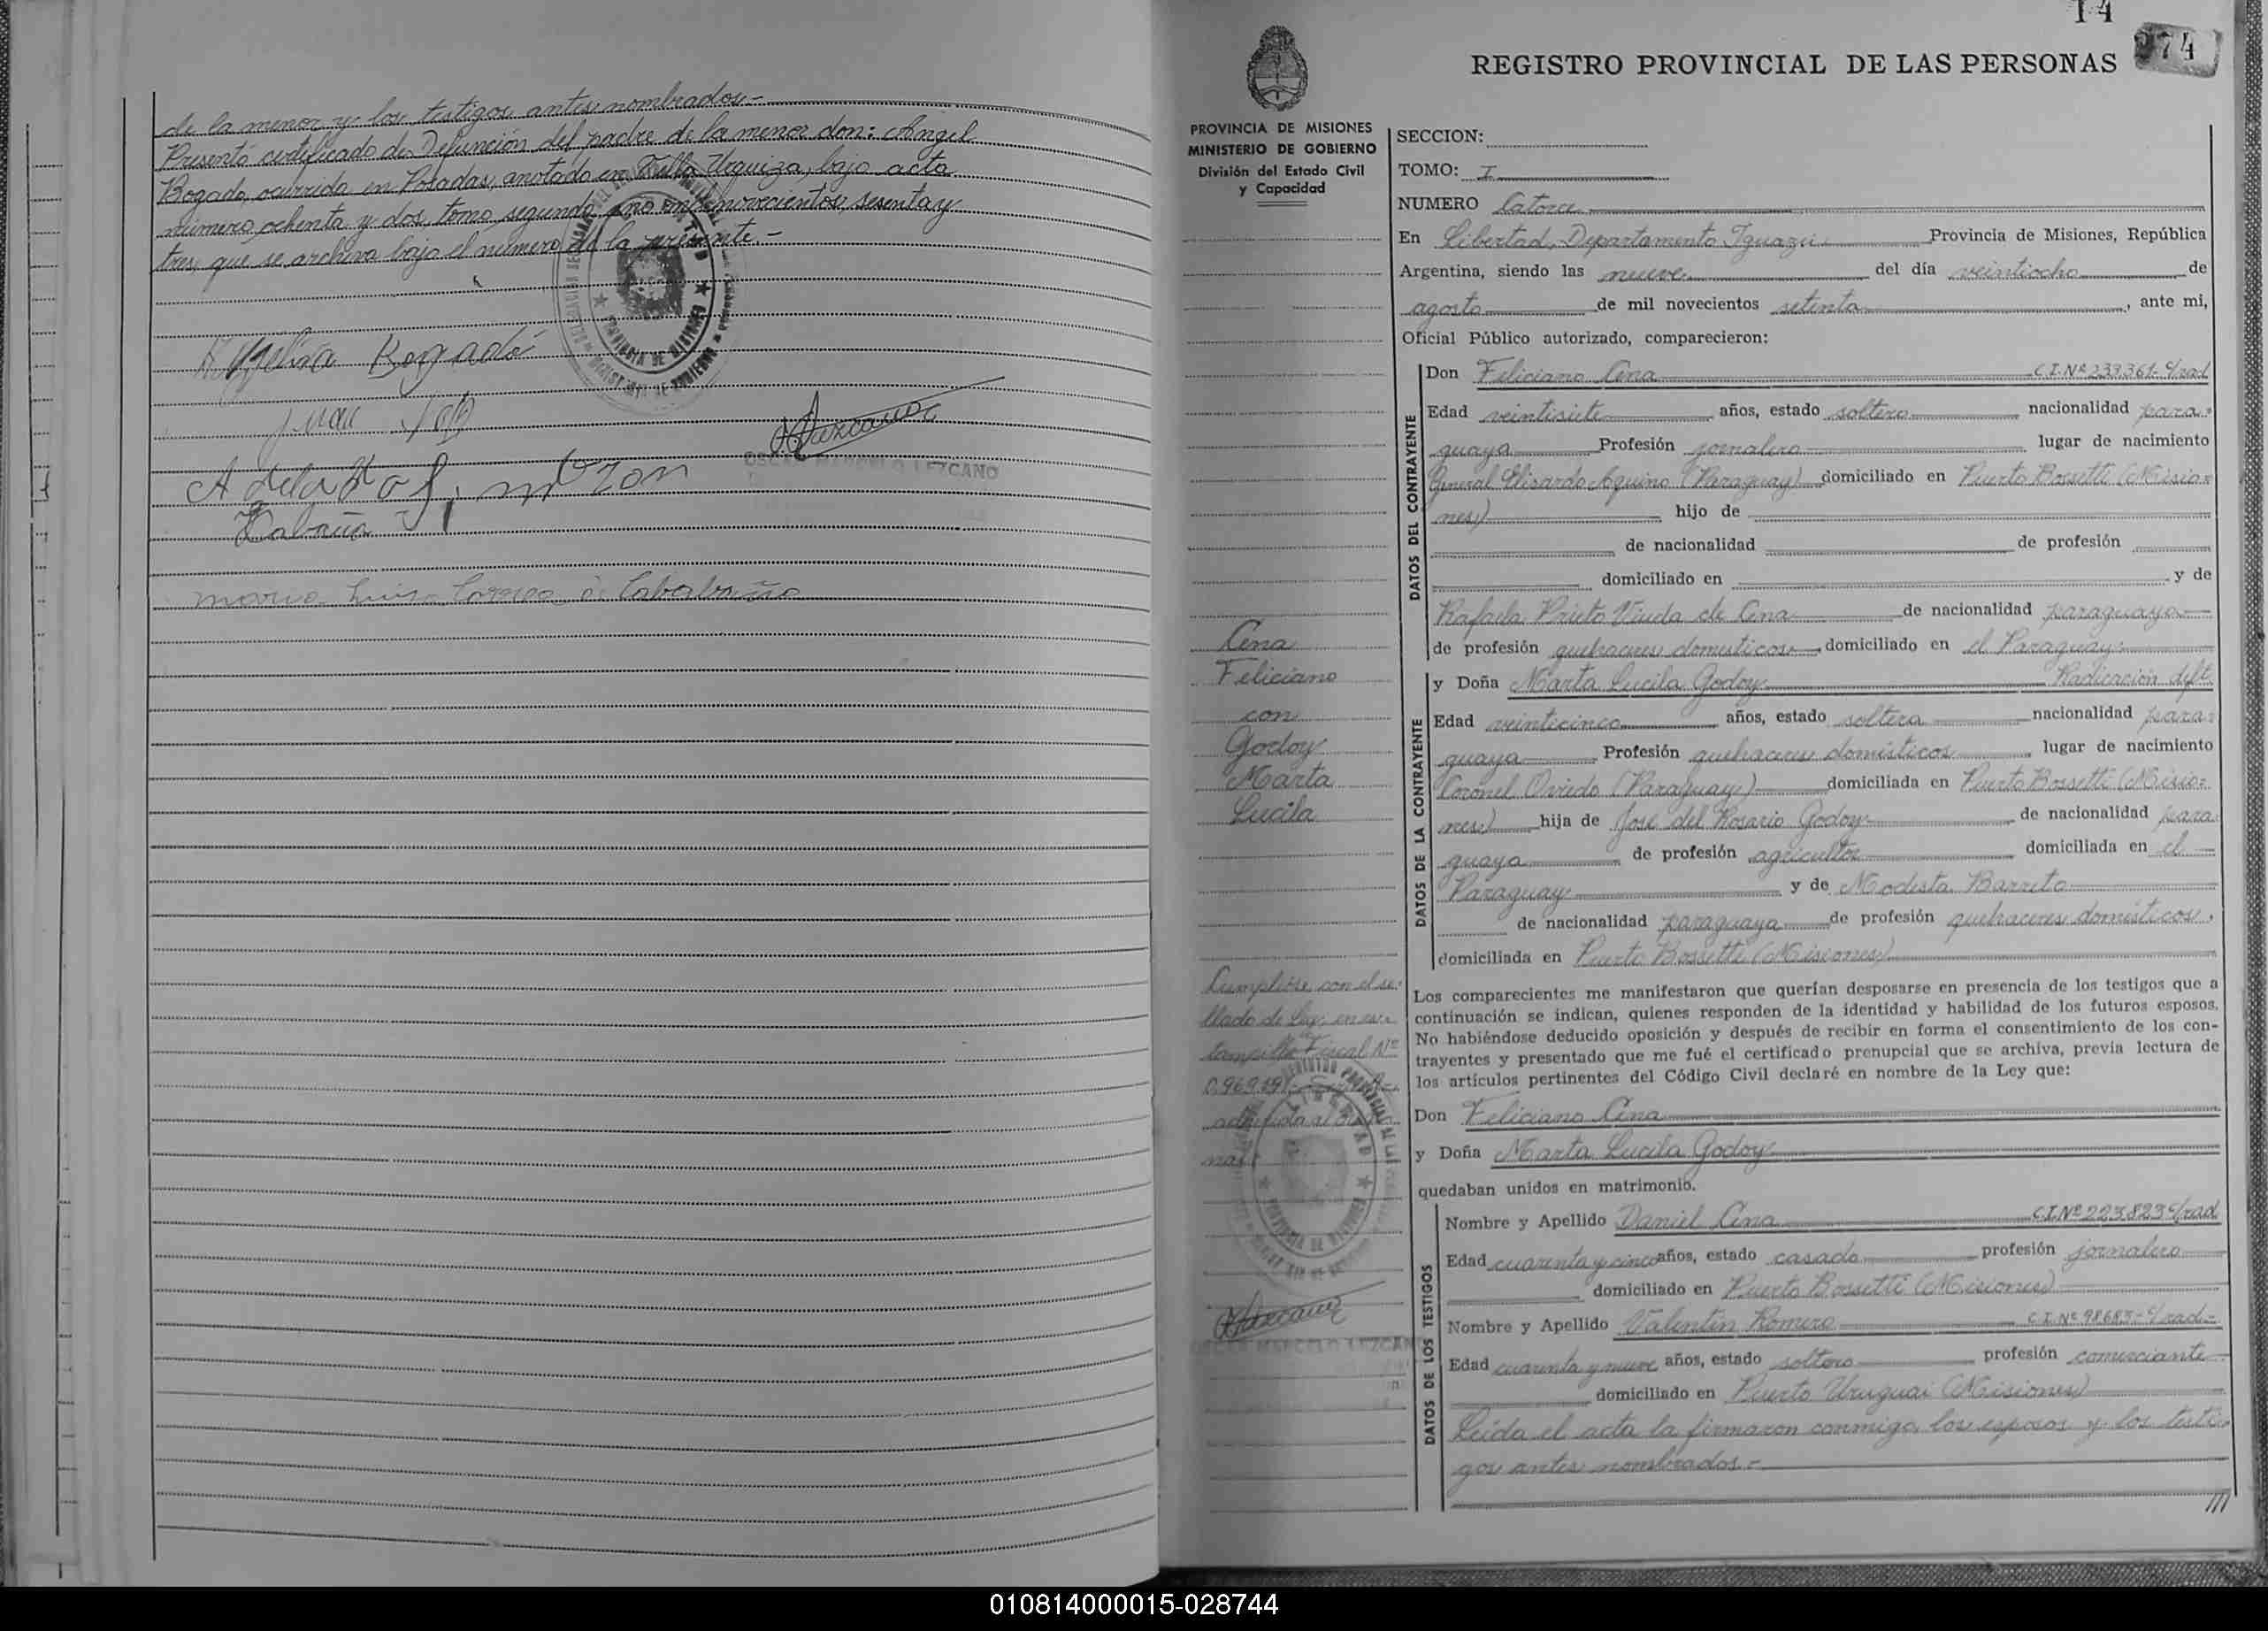 de la menor y los testigos antes nombrados.-
Presentó certificado de Defunción del padre de la menor don: Angel
Bogado, ocurrido en Posadas, anotado en Villa Urquiza, bajo acta
número ochenta y dos, tomo segundo, año mil novecientos sesenta y
tres, que se archiva bajo el número de la presente.-
Bogado
Juan
OSCAR MARCELO LEZCANO
14
974
REGISTRO PROVINCIAL DE LAS PERSONAS
PROVINCIA DE MISIONES
MINISTERIO DE GOBIERNO
División del Estado Civil
y Capacidad
SECCION:
TOMO: I
NUMERO Catorce
En Libertad, Departamento Iguazú Provincia de Misiones, República
Argentina, siendo las nueve del día veintiocho de
agosto de mil novecientos setenta, ante mi,
Oficial Público autorizado, comparecieron:
DATOS DEL CONTRAYENTE
Don Feliciano Cena C.I.Nº 239.361- c/rad
Edad veintisiete años, estado soltero nacionalidad para-
guaya Profesión jornalero lugar de nacimiento
General Elisardo Aquino (Paraguay) domiciliado en Puerto Bossetti (Misio-
nes) hijo de
de nacionalidad de profesión
domiciliado en y de
Rafaela Prieto Viuda de Cena de nacionalidad paraguaya
de profesión quehaceres domesticos, domiciliado en el Paraguay
DATOS DE LA CONTRAYENTE
y Doña Marta Lucila Godoy Radicación dft.
Edad veinticinco años, estado soltera nacionalidad para-
guaya Profesión quehaceres domésticos lugar de nacimiento
Coronel Oviedo (Paraguay) domiciliada en Puerto Bossetti (Misio-
nes) hija de José del Rosario Godoy de nacionalidad para-
guaya de profesión agricultor domiciliada en el
Paraguay y de Modesta Barreto
de nacionalidad paraguaya de profesión quehaceres domésticos,
domiciliada en Puerto Bossetti (Misiones)
Cena
Feliciano
con
Godoy
Marta
Lucila
Los comparecientes me manifestaron que querían desposarse en presencia de los testigos que a
continuación se indican, quienes responden de la identidad y habilidad de los futuros esposos.
No habiéndose deducido oposición y después de recibir en forma el consentimiento de los con-
trayentes y presentado que me fué el certificado prenupcial que se archiva, previa lectura de
los artículos pertinentes del Código Civil declaré en nombre de la Ley que:
Don Feliciano Cena
y Doña Marta Lucila Godoy
quedaban unidos en matrimonio.
Cumplióse con el se-
llado de Ley, en es-
tampilla Fiscal Nº
OSCAR MARCELO LEZCANO
DATOS DE LOS TESTIGOS
Nombre y Apellido Daniel Cena C.I.Nº 223.823 c/rad
Edad cuarenta y cinco años, estado casado profesión jornalero
domiciliado en Puerto Bossetti (Misiones)
Nombre y Apellido Valentín Romero C.I.Nº 98.683- c/rad.-
Edad cuarenta y nueve años, estado soltero profesión comerciante
domiciliado en Puerto Uruguai (Misiones)
Leída el acta la firmaron conmigo, los esposos y los testi-
gos antes nombrados.-
///
010814000015-028744